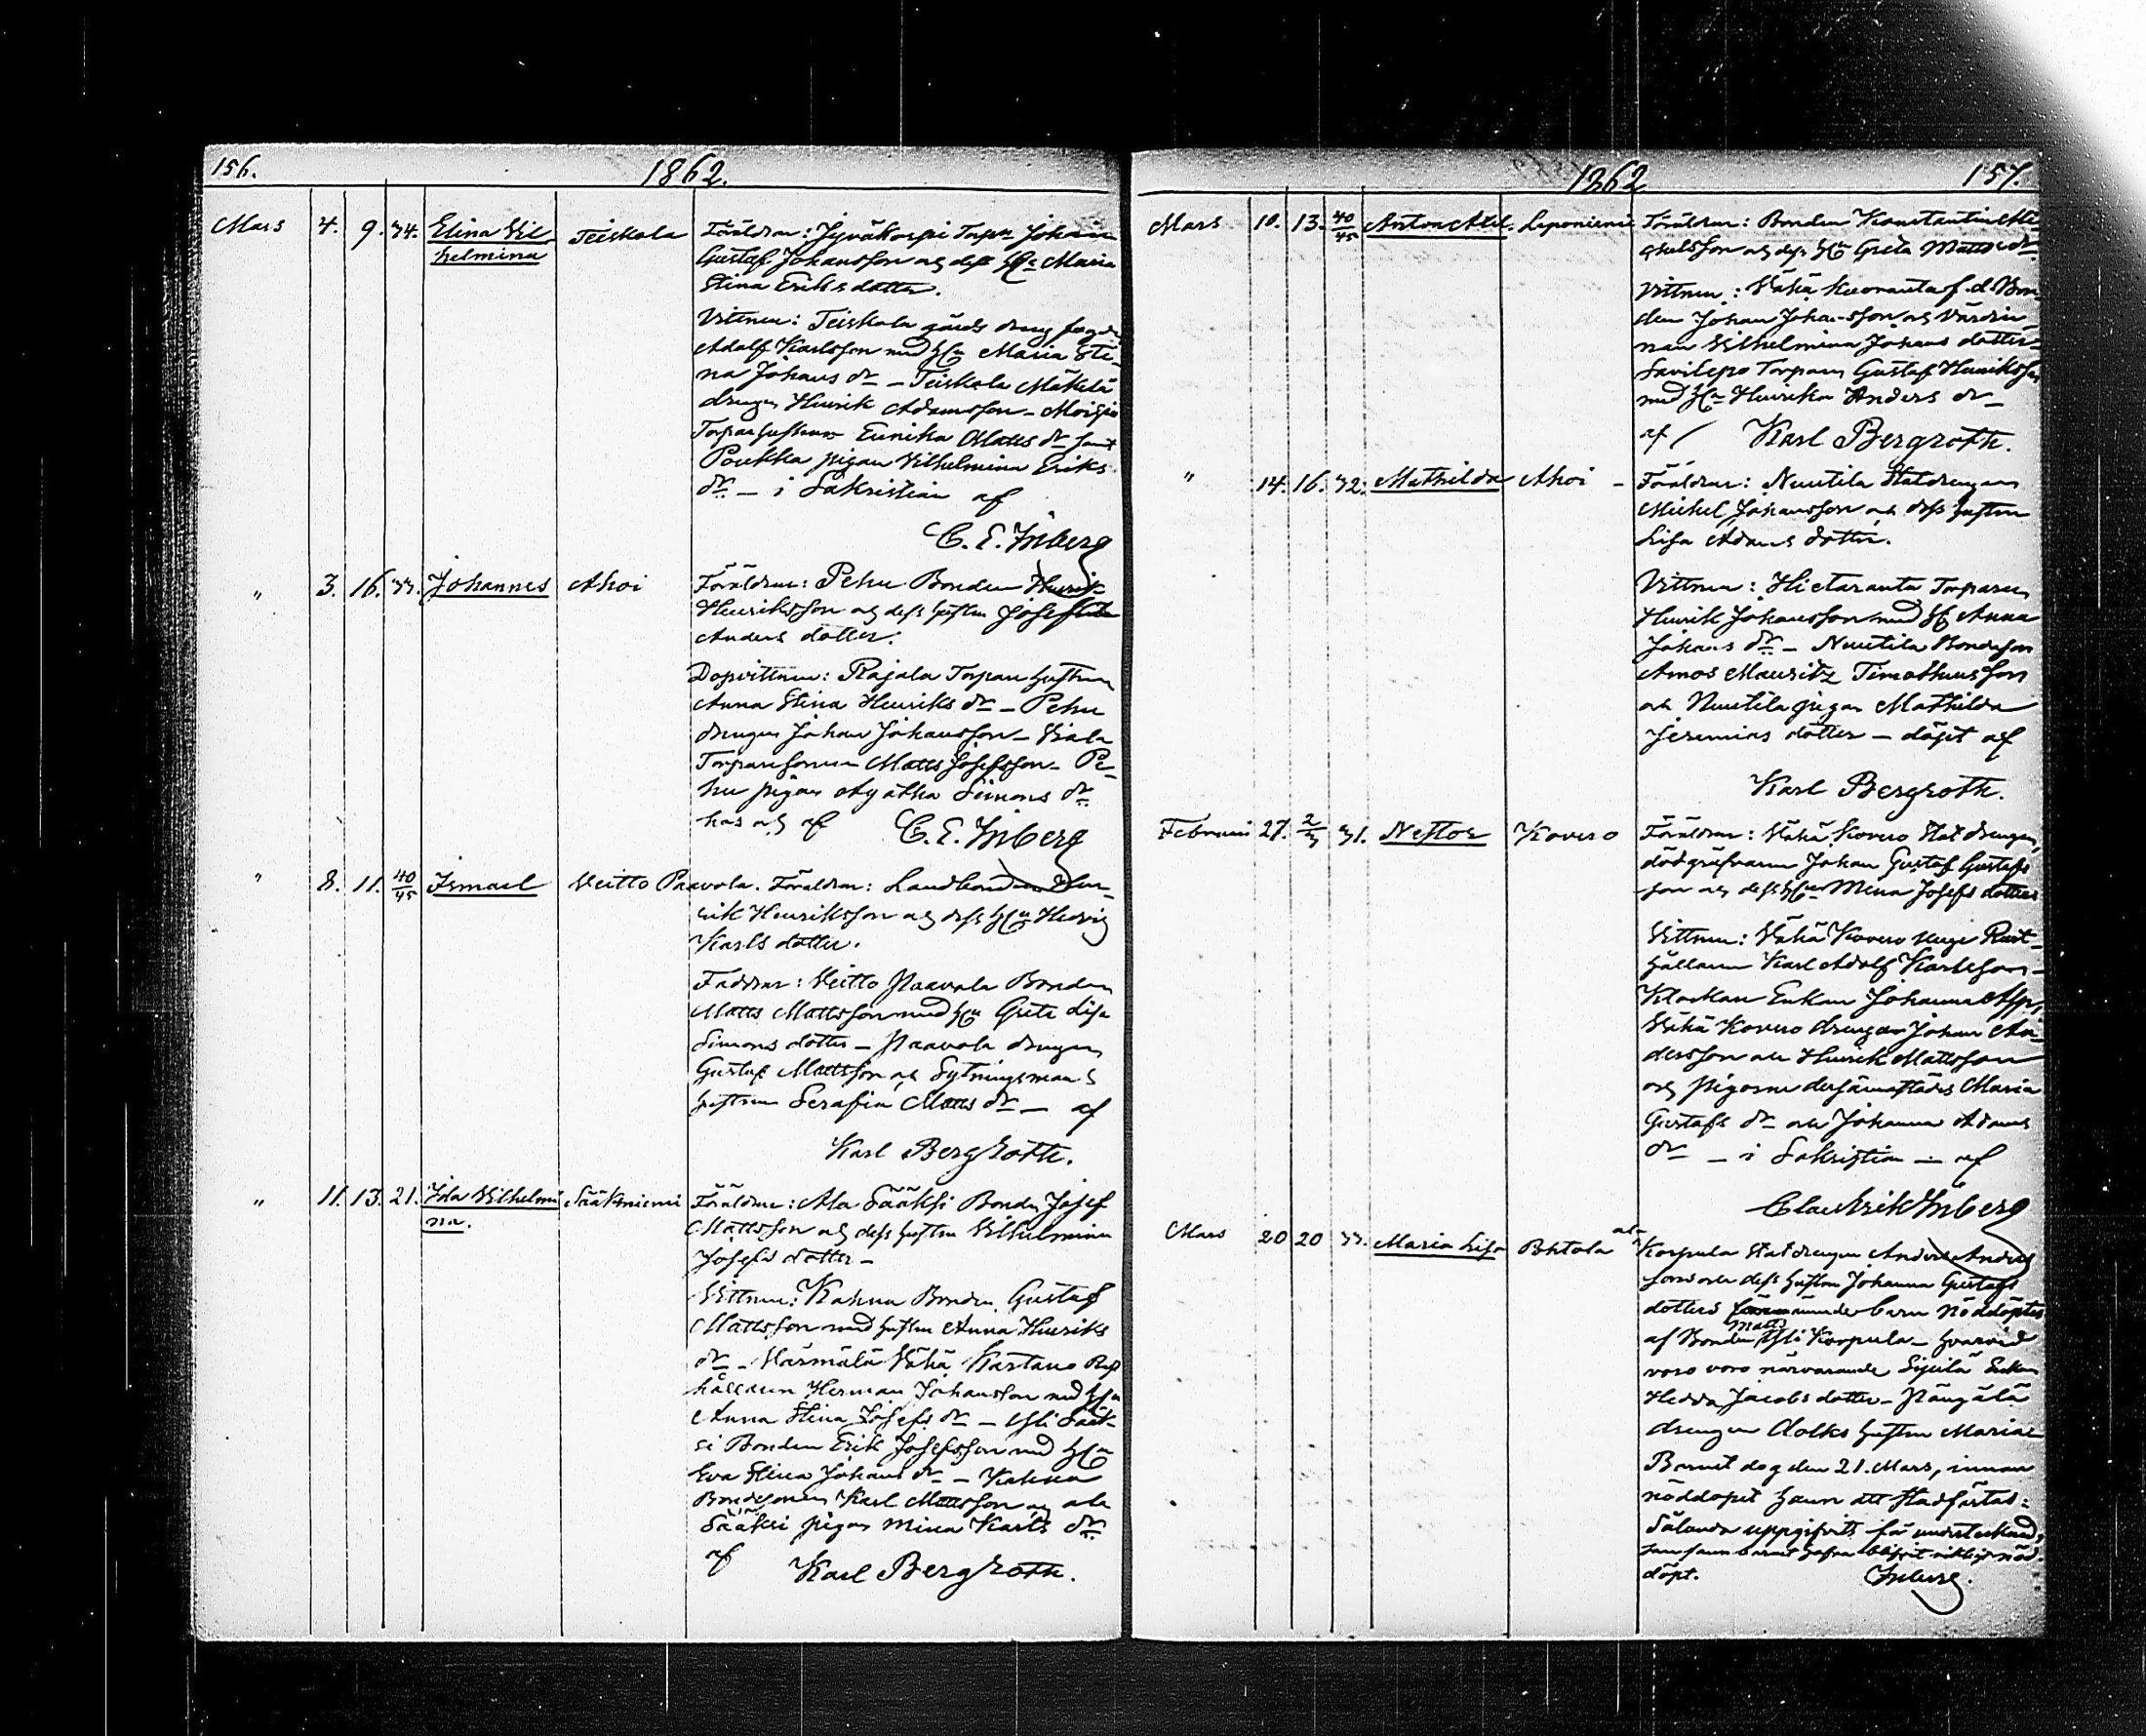 156.
1862.
Mars 4. 9. 34. Elina Wil Teiskola Föräldrar: Jyväkorpi Torpn Johan
helmina Gustaf Johansson och dess H:u Maria
Stina Eriksdotter.
Vittnen: Teiskola gårds dreng fogde
Adolf Karlsson med H:u Maria Sti-
na Johans dr – Teiskola Mäkelä
drengen Henrik Adamsson – Moisio
Torpar hustrun Eunika Matts dr samt
Poukka pigan Vilhelmina Eriks
dr – i Sakristian af
C. E. Inberg
" 3. 16. 33. Johannes Ahoi Föräldrar: Pehu Bonden Henrik
Henriksson och dess hustru Josefina
Anders dotter.
Dopvittnen: Rajala Torpare hustrun
Anna Stina Henriks dr – Pehu
drengen Johan Johansson –
Torparesonen Matts Josefsson – Pe-
hu pigan Agatha Simons dr
has och af C. E. Inberg
" 8. 11. 40/45 Ismael Veitto Paavola. Föräldrar: Landbonden Hen-
rik Henriksson och dess H:u Hedvig
Karls dotter.
Faddrar: Veitto Paavola Bonden
Matts Mattsson med H:u Greta Lisa
Simons dotter – Paavola drengen
Gustaf Mattsson och Sytningsmans
hustrun Serafia Matts dr – af
Karl Bergroth.
" 11. 13. 21. Ida Vilhelmi Sääksniemi Föräldrar: Ala Sääksi Bonden Josef
na. Mattsson och dess hustru Vilhelmina
Josefs dotter –
Vittnen: Kahna Bonden Gustaf
Mattsson med hustru Anna Henriks
dr – Närmälä Vähä Kartano Rust
hållaren Herman Johansson med H:u
Anna Stina Josefs dr – Yli Sääk-
si Bonden Erik Josefsson med H:u
Eva Stina Johans dr – Kahna
Bondesonen Karl Mattsson och ala
Sääksi pigan Mina Karls dr
af Karl Bergroth.
1862
157.
Mars 10. 13. 40/45 Anton Axel. Leponiemi Föräldrar: Bonden Konstantin Mi-
chelsson och dess H:u Greta Matts dr
Vittnen: Vähä Kuoranta f. d. Bon-
den Johan Johansson och Värdin-
nan Vilhelmina Johans dotter –
Savilepo Torparn Gustaf Henriksson
med H:u Henrika Anders dr –
af Karl Bergroth.
" 14. 16. 32. Mathilda Ahoi – Föräldrar: Nuutila Statdrengen
Michel Johansson och dess hustru
Lisa Adams dotter.
Vittnen: Hietaranta Torparen
Henrik Johansson med H:u Anna
Johans dr – Nuutila Bondeson
Amos Mauritz Timotheusson
och Nuutila pigan Mathilda
Jeremias dotter – döpt af
Karl Bergroth.
Februari 27. 2/3 31. Nestor Kovero Föräldrar: Vähä Kovero Statdrengen,
dödgräfvaren Johan Gustaf Gustafs
son och dess H:u Mina Josefs dotter
Vittnen: Vähä Kovero unge Rust-
hållaren Karl Adolf Karlsson –
Klockare Enkan Johanna Asp,
Vähä Kovero drengar Johan An-
dersson och Henrik Mattsson
och pigorne dersammastädes Maria
Gustafs dr och Johanna Adams
dr – i Sakristian – af
Clas Erik Inberg
Mars 20 20 33. Maria Lisa Pohtola al-
Korpula Statdrengen Anders Anders
sons och dess hustru Johanna Gustafs
dotters barn nöddöptes
af Bonden Matts Yli Korpula – hvarvid
voro voro närvarande Sipilä Enkan
Hedda Jacobs dotter – Pängälä
drengen Aolks hustru Maria
Barnet dog den 21. Mars, innan
nöddopet hann att stadfästas:
Sålunda uppgifvits för undertecknad,
som fann barnet hafva blifvit riktigt nöd-
döpt. Inberg.